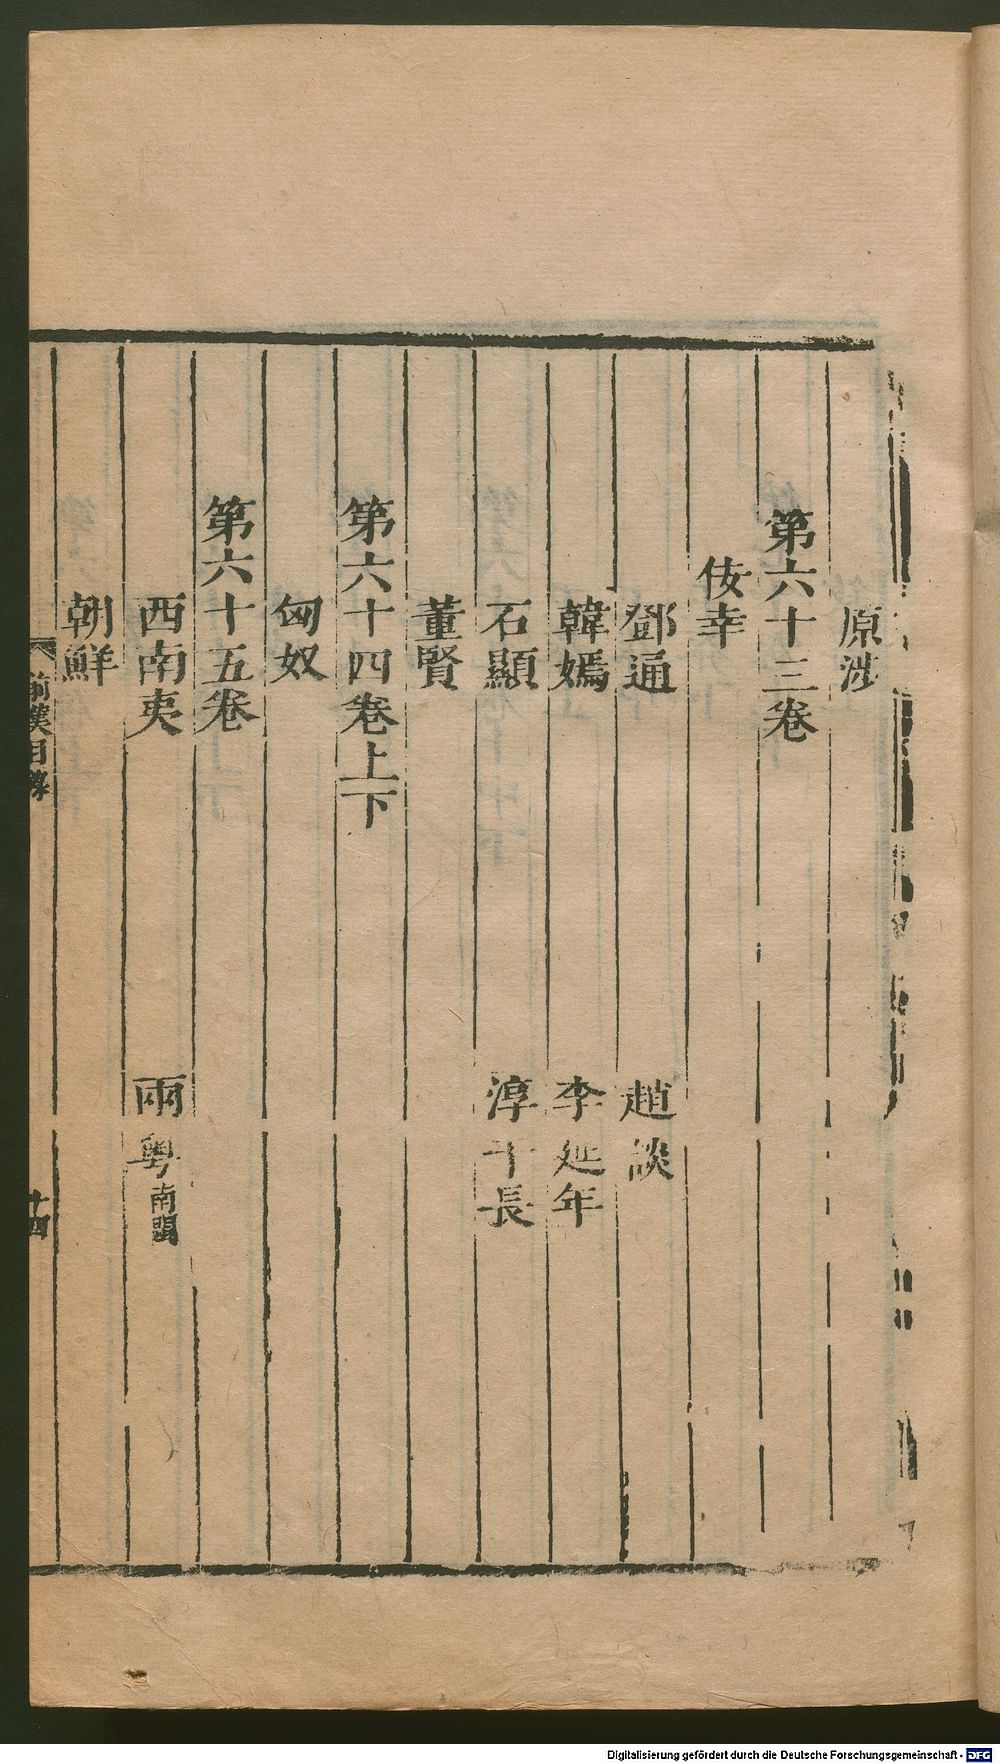 原涉
第六十三卷
佞幸
鄧通 趙談
韓嫣 李延年
石顯 淳于長
董賢
第六十四卷上下
匈奴
第六十五卷
西南夷 兩粵南閩
朝鮮
前漢目錄 十四
Digitalisierung gefördert durch die Deutsche Forschungsgemeinschaft - DFG